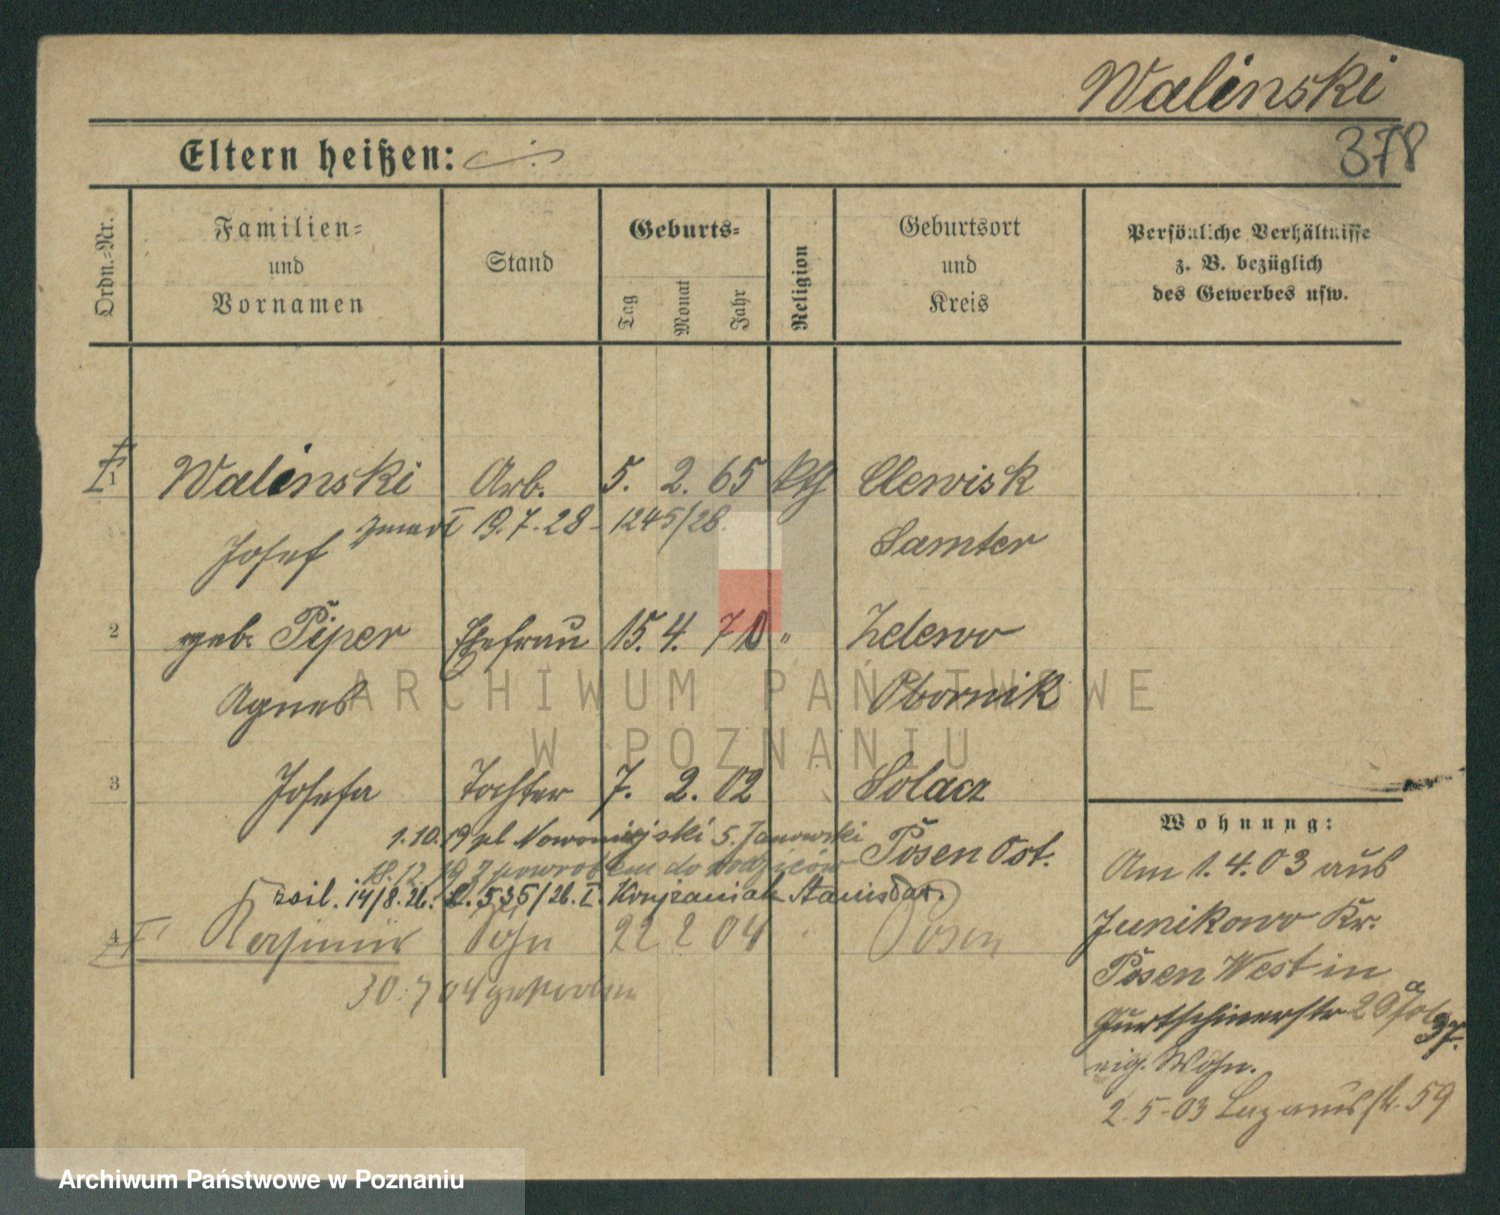 Walinski
378
Eltern heißen:
Ordn.-Nr.
Familien-
und
Vornamen
Stand
Geburts-
Tag
Monat
Jahr
Religion
Geburtsort
und
Kreis
Persönliche Verhältnisse
z. B. bezüglich
des Gewerbes usw.
1 Walinski Arb. 5. 2. 65 kth Clewisk
zmarł 19.7.28 - 1245/28.
Josef Samter
2 geb. Piper Ehefrau 15. 4. 70 " Zelewo
Agnes Obornik
3 Josefa Tochter 7. 2. 02 Solacz
1.10.19 pl Nowomiejski 5. Janowski Posen Ost.
18.12.19 z powrotem do rodziców
14/8.26. 535/26. I. Stanisław.
4 Kasimir Sohn 22 2 04 Posen
30.7 04 gestorben
Wohnung:
Am 1.4.03 aus
Junikowo Kr.
Posen West in
Gurtschinerstr 29a
37.
eig. Wohn.
2.5-03 Lazarusstr. 59
ARCHIWUM PAŃSTWOWE
W POZNANIU
Archiwum Państwowe w Poznaniu